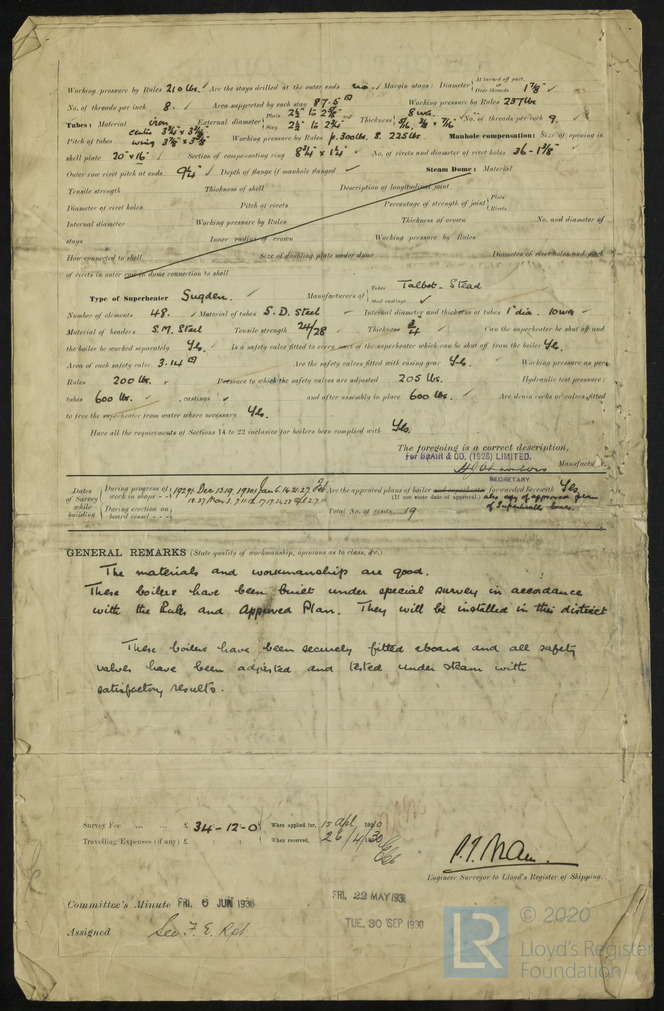 Working pressure by Rules 210 lbs. Are the stays drilled at the outer ends no. Margin stays: Diameter { At turned off part, or Over threads 1 7/8"
No. of threads per inch 8. Area supported by each stay 87.5 Working pressure by Rules 237 lbs
Tubes: Material iron External diameter { Plain 2½" Stay 2½" to 2¾" Thickness { 8 WG. 5/16, 3/8 & 7/16" No. of threads per inch 9.
Pitch of tubes centre 3¾" x 3¾" wing 3 7/8" x 3¾" Working pressure by Rules p. 300 lbs. S. 225 lbs Manhole compensation: Size of opening in
shell plate 20" x 16" Section of compensating ring 8¾" x 1¼" No. of rivets and diameter of rivet holes 36 - 1 3/8"
Outer row rivet pitch at ends 9¼" Depth of flange if manhole flanged Steam Dome: Material
Tensile strength Thickness of shell Description of longitudinal joint
Diameter of rivet holes Pitch of rivets Percentage of strength of joint { Plate Rivets
Internal diameter Working pressure by Rules Thickness of crown No. and diameter of
stays Inner radius of crown Working pressure by Rules
How connected to shell Size of doubling plate under dome Diameter of rivet holes and pitch
of rivets in outer row in dome connection to shell
Type of Superheater Sugden. Manufacturers of { Tubes Talbot-Stead Steel castings
Number of elements 48. Material of tubes S.D. Steel Internal diameter and thickness of tubes 1" dia. 10 WG
Material of headers S.M. Steel Tensile strength 24/28 Thickness ¾ Can the superheater be shut off and
the boiler be worked separately Yes. Is a safety valve fitted to every part of the superheater which can be shut off from the boiler Yes.
Area of each safety valve 3.14 Are the safety valves fitted with easing gear Yes. Working pressure as per
Rules 200 lbs. Pressure to which the safety valves are adjusted 205 lbs. Hydraulic test pressure:
tubes 600 lbs. castings and after assembly in place 600 lbs. Are drain cocks or valves fitted
to free the superheater from water where necessary Yes.
Have all the requirements of Sections 14 to 22 inclusive for boilers been complied with Yes.
The foregoing is a correct description,
For BLAIR & CO. (1926) LIMITED.
Manufacturer.
SECRETARY.
Dates of Survey while building { During progress of work in shops - - 1929: Dec 13.19. 1930: Jan 6.14.21.27. Feb Are the approved plans of boiler and superheater forwarded herewith Yes
(If not state date of approval.) also copy of approved plan of Superheater boxes.
During erection on board vessel - - - Total No. of visits 19
GENERAL REMARKS (State quality of workmanship, opinions as to class, &c.)
The materials and workmanship are good.
These boilers have been built under special survey in accordance
with the Rules and Approved Plan. They will be installed in this district
These boilers have been securely fitted aboard and all safety
valves have been adjusted and tested under steam with
satisfactory results.
Survey Fee ... ... £ 34-12-0 When applied for, 15 Apl. 1930
Travelling Expenses (if any) £ : : When received, 26/4/30
Engineer Surveyor to Lloyd's Register of Shipping.
Committee's Minute FRI. 6 JUN 1930
FRI. 23 MAY 1930
TUE. 30 SEP 1930
Assigned See F.E. Rpt.
LR © 2020
Lloyd's Register
Foundation